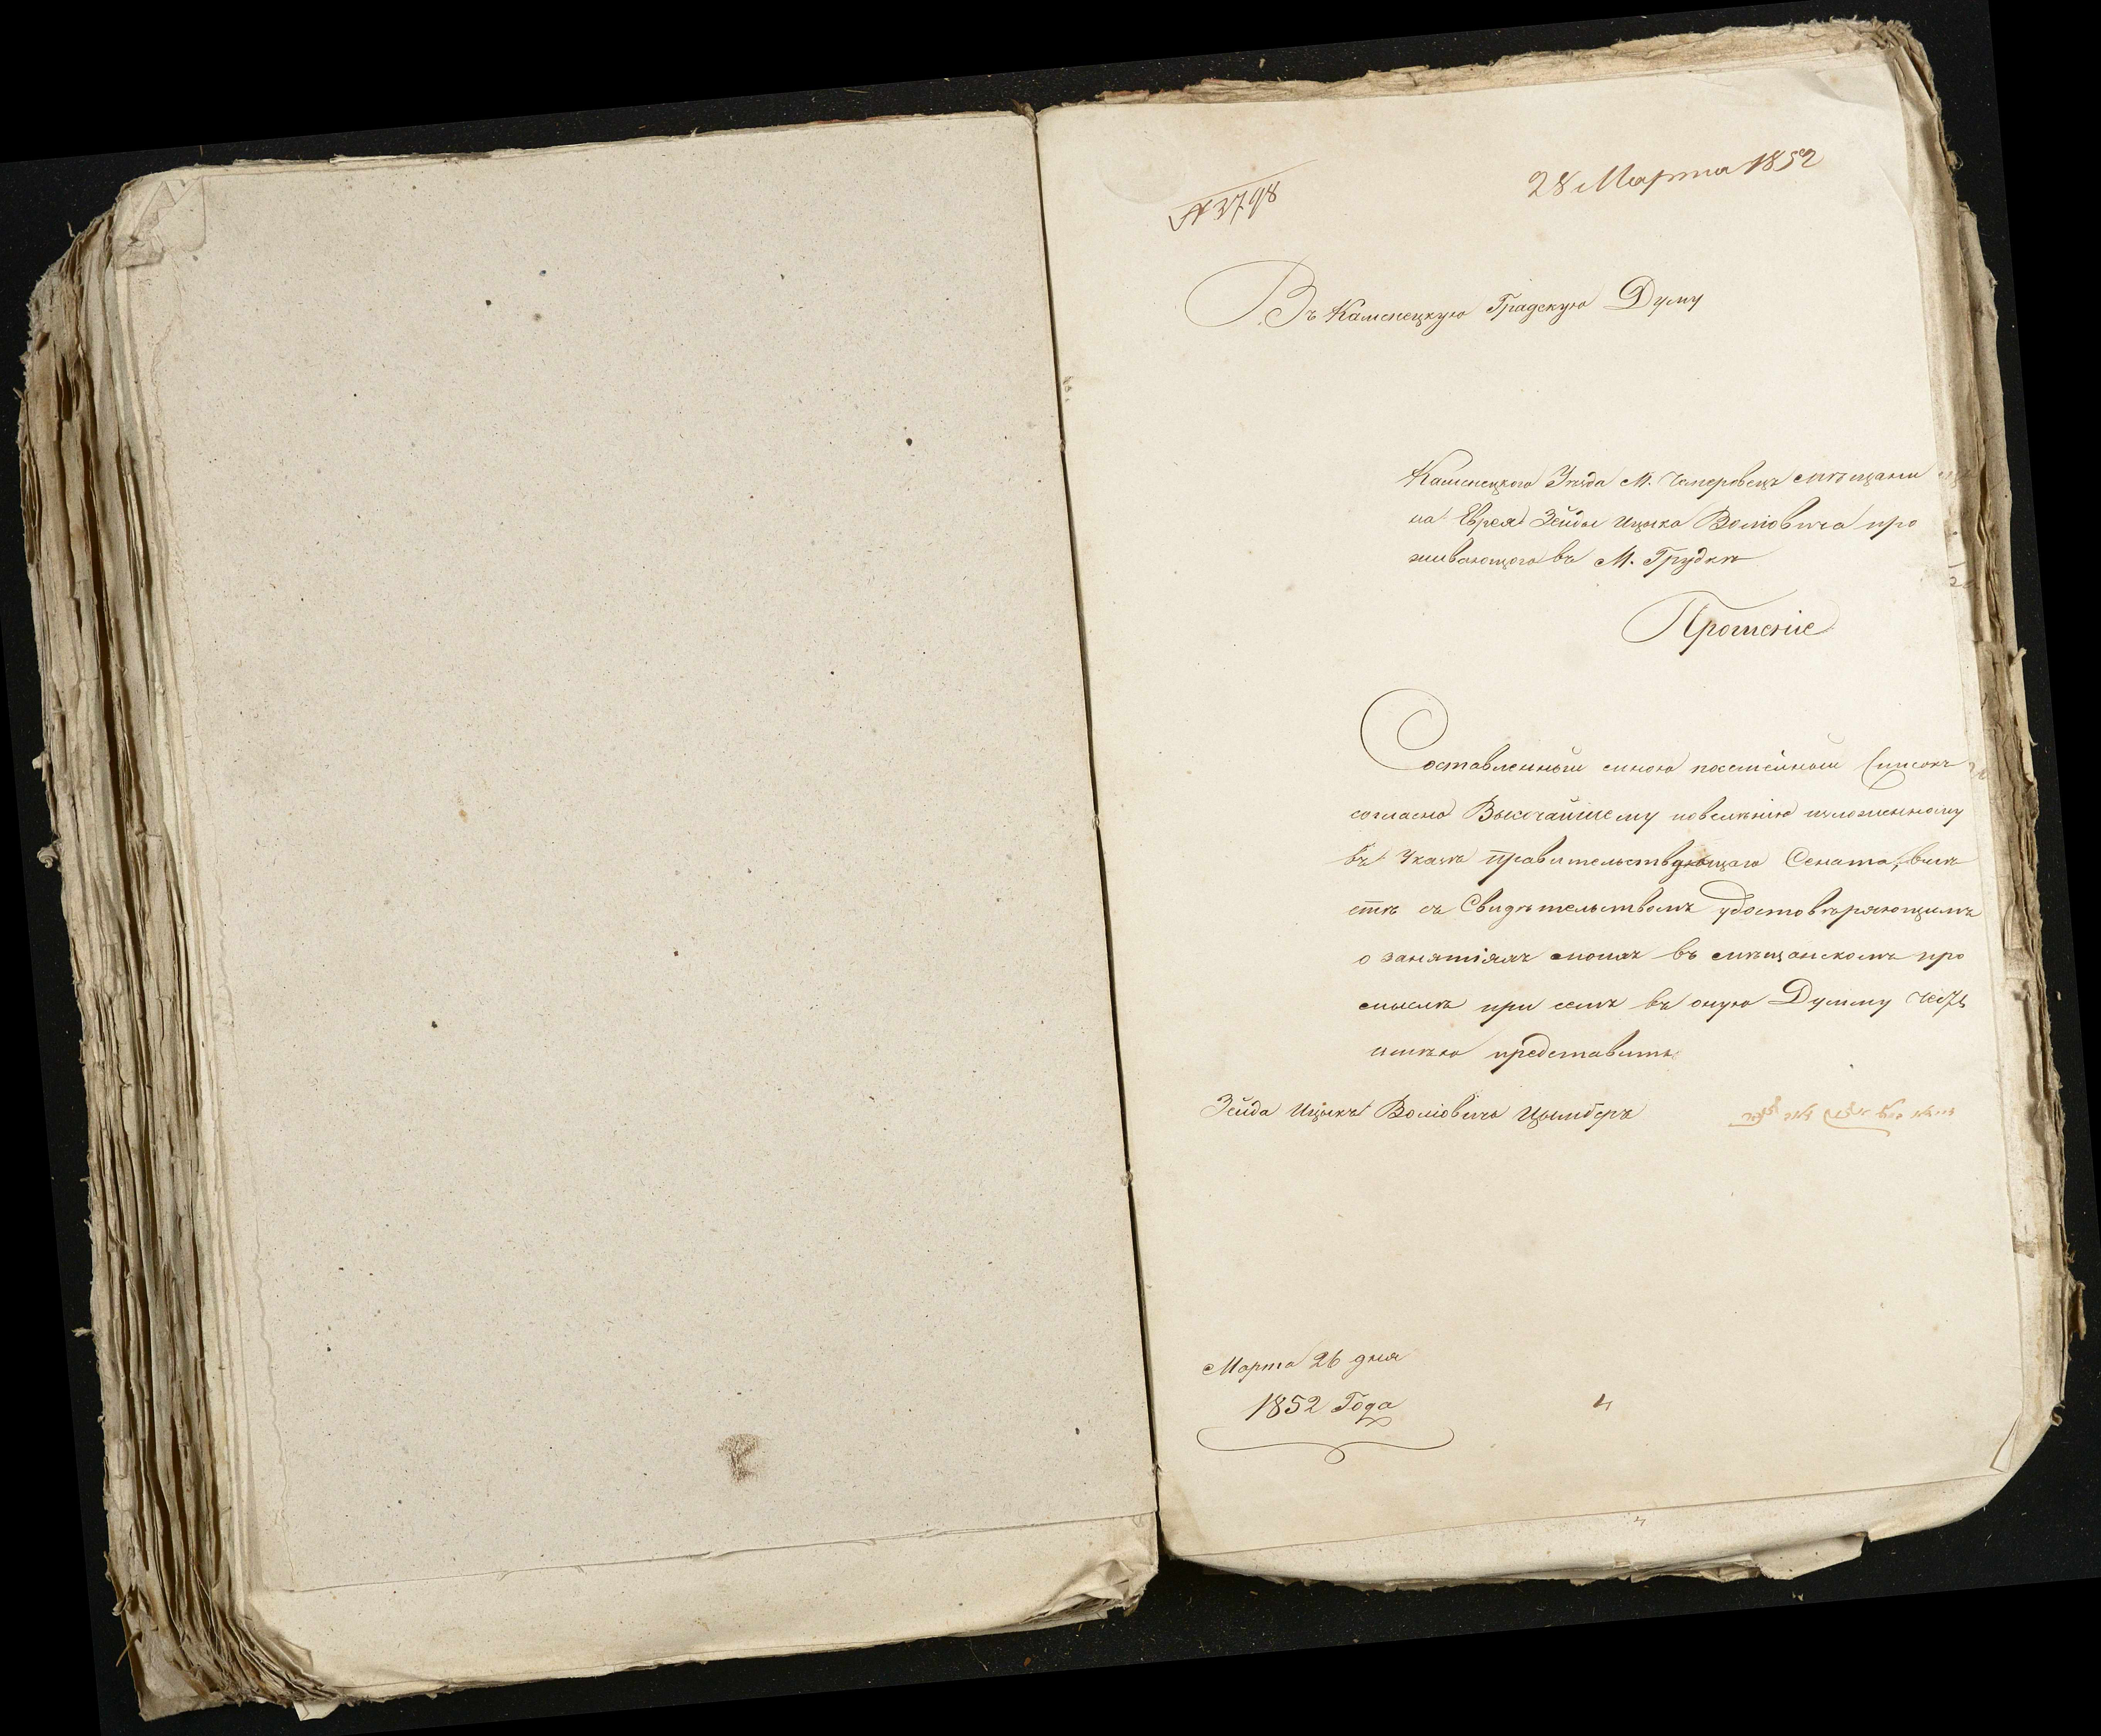 № 3798
28 Марта 1852
Въ Каменецкую Градскую Думу
Каменецкого Уезда М. Чемеровецъ мѣщани
на Еврея Зейды Ицька Волïовича про
живающого въ М. Грудкѣ
Прошенïе
Составленный мною посемейный Списокъ
согласно Высочайшему повелѣнïю изложенному
въ Указѣ Правительствующаго Сената, вмѣ
стѣ съ Свидѣтельствомъ удостовѣряющимъ
о занятïяхъ моихъ въ мѣщанскомъ про
мыслѣ при семъ въ оную Думму честь
имѣю представить
Зейда Ицькъ Волïовичъ Цымберъ
Марта 26 дня
1852 Года